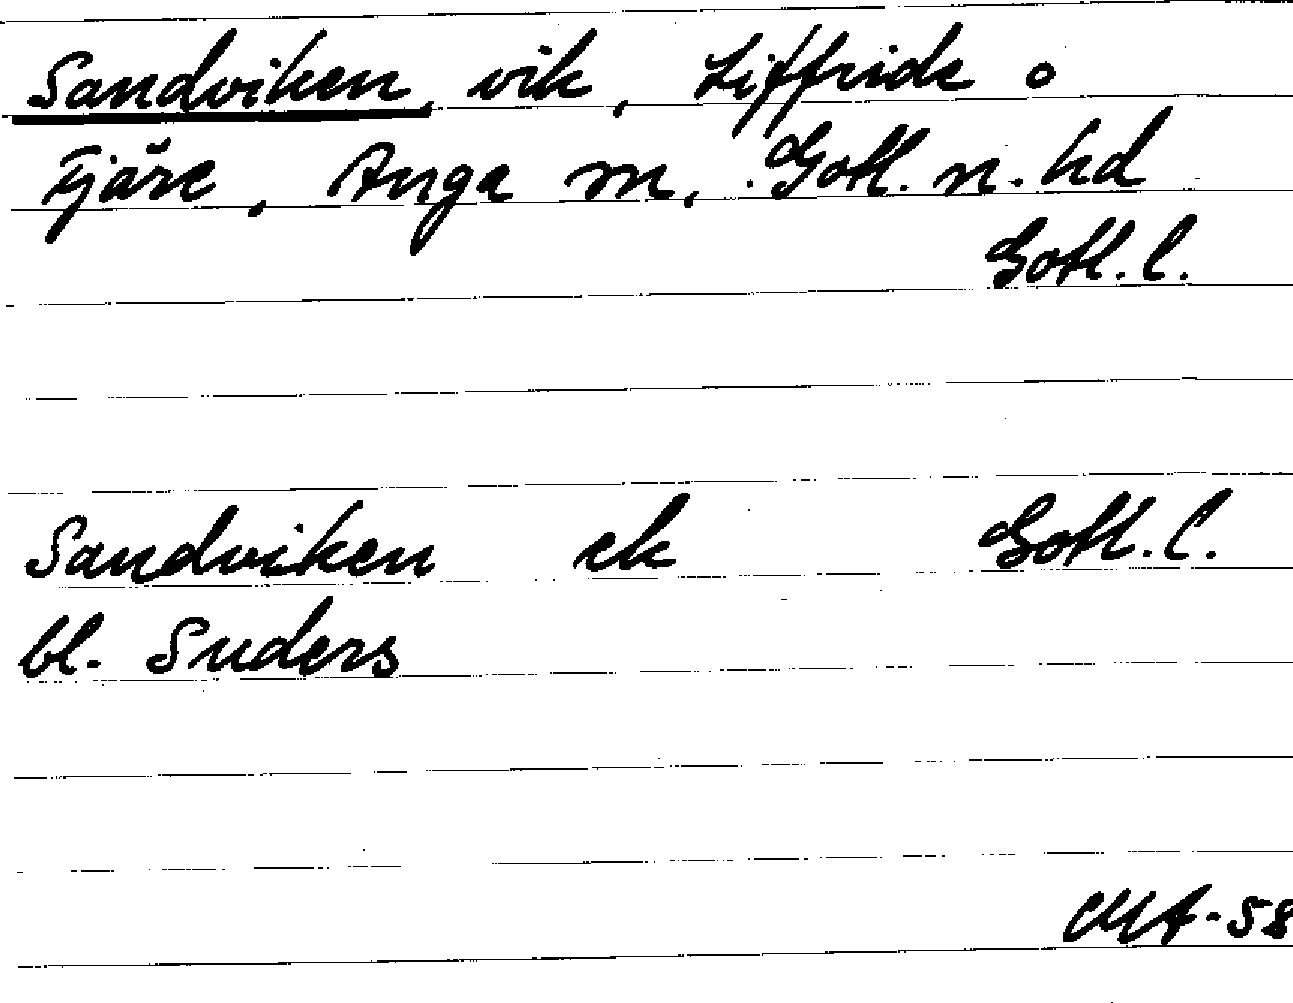 Sandviken, vik, Liffride o
Fjäre, Anga sn, Gotl. n. hd
Gotl. l.
Sandviken ek Gotl. l.
bl. Suders
CMA-58